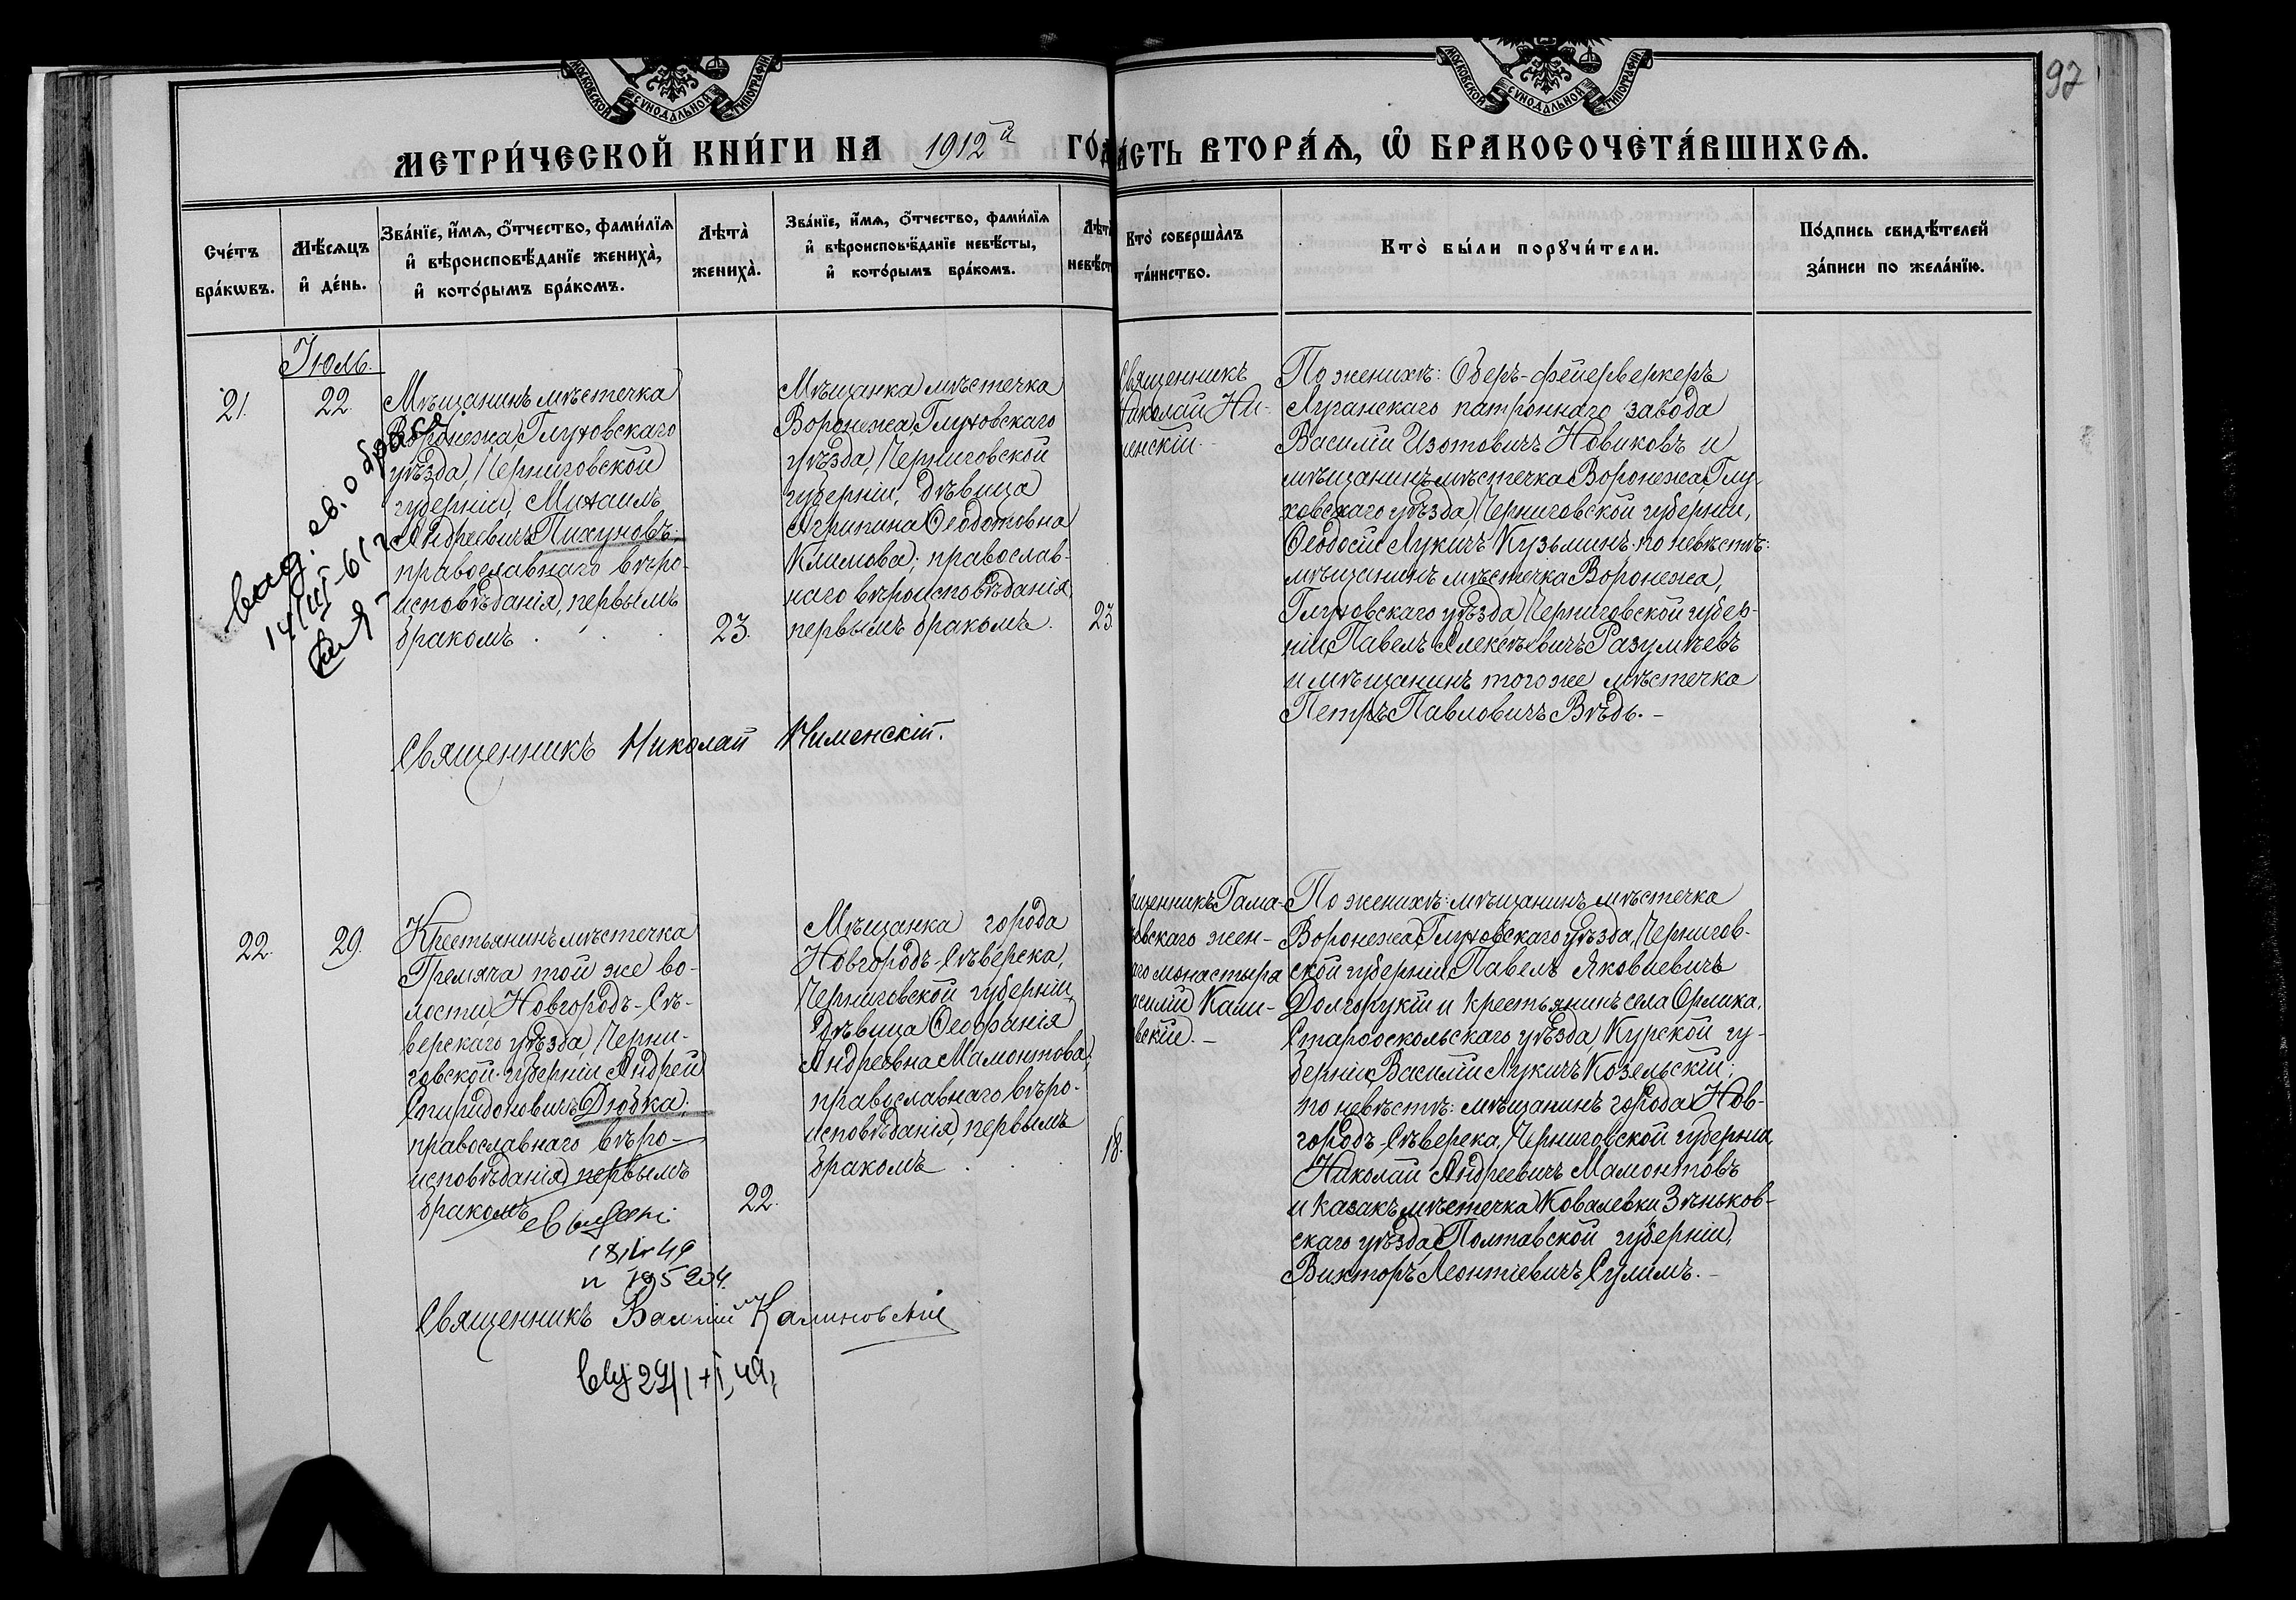 97
МОСКОВСКОЙ СѴНОДАЛЬНОЙ ТИПОГРАФІИ
МОСКОВСКОЙ СѴНОДАЛЬНОЙ ТИПОГРАФІИ
МЕТРИ́ЧЕСКОЙ КНИ́ГИ НА 1912й ГО́Д
А́СТЬ ВТОРА́Ѧ, Ѿ БРАКОСОЧЕТА́ВШИХСѦ.
Сче́тъ
бра́кѡвъ.
Мѣ́сѧцъ
и҆ де́нь.
Зва́нїе, и҆́мѧ, ѻ҆́тчество, фами́лїѧ
и҆ вѣроисповѣ́данїе жениха̀,
и҆ кото́рымъ бра́комъ.
Лѣта̀
жениха̀.
Зва́нїе, и҆́мѧ, ѻ҆́тчество, фами́лїѧ
и҆ вѣроисповѣ́данїе невѣ́сты,
и҆ кото́рымъ бра́комъ.
Лѣт
невѣ́ст
Кто̀ соверша̀лъ
та́инство.
Кто̀ бы́ли порꙋчи́тели.
По́дпись свидѣ́телей
за́писи по жела́нїю.
Іюль.
21.
22.
Мѣщанинъ мѣстечка
Воронежа, Глуховскаго
уѣзда, Черниговской
губерніи, Михаилъ
Андреевичъ Пихуновъ;
православнаго вѣро-
исповѣданія, первымъ
бракомъ
23.
Мѣщанка мѣстечка
Воронежа, Глуховскаго
уѣзда, Черниговской
губерніи, дѣвица
Агрипина Ѳеодотовна
Климова; православ-
наго вѣроисповѣданія,
первымъ бракомъ.
23.
Священникъ
Николай Ни-
менскій.
По женихѣ: Оберъ-фейерверкеръ
Луганскаго патроннаго завода
Василій Изотовичъ Новиковъ и
мѣщанинъ мѣстечка Воронежа, Глу-
ховскаго уѣзда, Черниговской губерніи,
Ѳеодосій Лукичъ Кузьминъ; по невѣстѣ:
мѣщанинъ мѣстечка Воронежа,
Глуховскаго уѣзда, Черниговской губер-
ніи, Павелъ Алексѣевичъ Разумѣевъ
и мѣщанинъ того же мѣстечка
Петръ Павловичъ Вѣдь. -
св. о браке
Священникъ Николай Нименскій.
22.
29.
Крестьянинъ мѣстечка
Гремяча той же во-
лости, Новгородъ-Сѣ-
верскаго уѣзда, Черни-
говской губерніи Андрей
Спиридоновичъ Дюбка;
православнаго вѣро-
исповѣданія, первымъ
бракомъ
22.
Мѣщанка города
Новгородъ-Сѣверска,
Черниговской губерніи,
дѣвица Ѳеофанія
Андреевна Мамонтова;
православнаго вѣро-
исповѣданія, первымъ
бракомъ
18.
щенникъ Гама-
евскаго жен-
аго монастыря
асилій Кали-
вскій. -
По женихѣ: мѣщанинъ мѣстечка
Воронежа, Глуховскаго уѣзда, Чернигов-
ской губерніи Павелъ Яковлевичъ
Долгорукій и крестьянинъ села Орлика,
Старооскольскаго уѣзда, Курской гу-
берніи, Василій Лукичъ Козельскій;
по невѣстѣ: мѣщанинъ города Нов-
городъ-Сѣверска, Черниговской губерніи,
Николай Андреевичъ Мамонтовъ
и казакъ мѣстечка Ковалевки, Зѣньков-
скаго уѣзда, Полтавской губерніи,
Викторъ Леонтіевичъ Сулимъ. -
Священникъ Василій Калиновскій